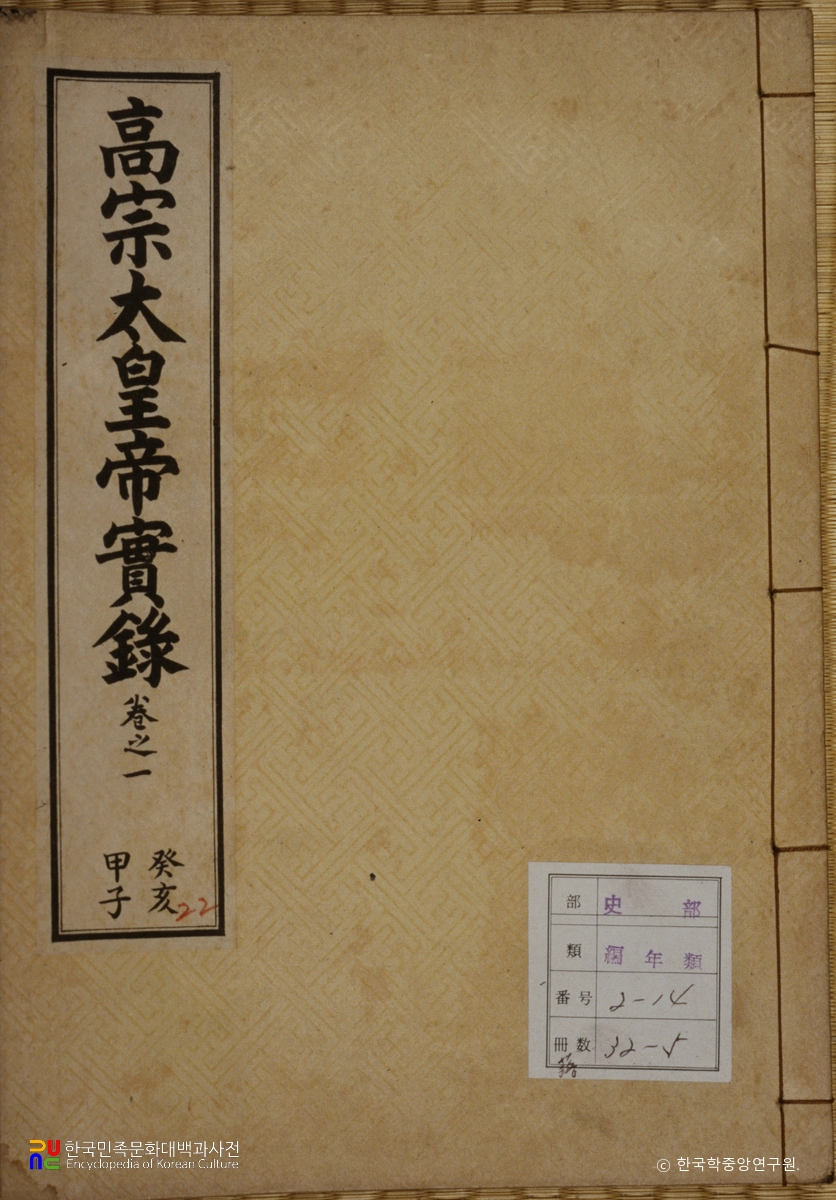 高宗太皇帝實錄 卷之一
癸亥
甲子
22
部 史部
類 編年類
番号 2-14
冊数 32-5
한국민족문화대백과사전
Encyclopedia of Korean Culture
© 한국학중앙연구원.